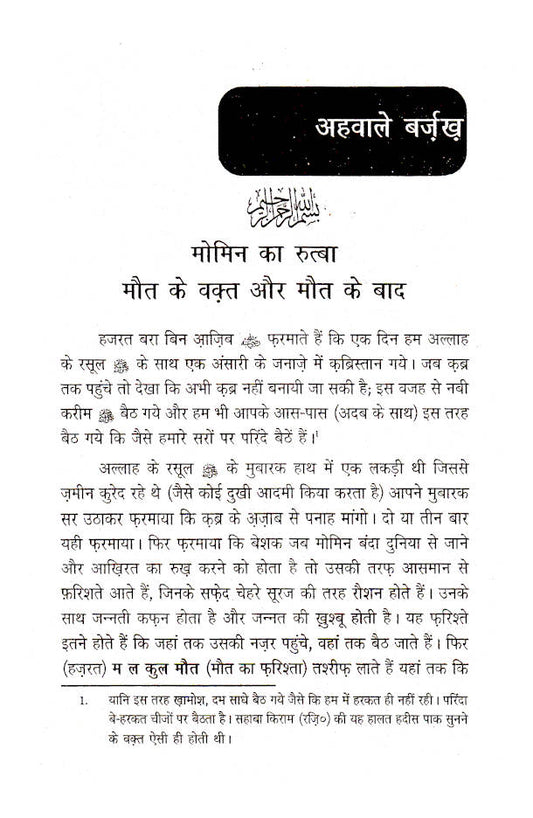 अहवाले बर्ज़ख़
بسم الله الرحمن الرحيم
मोमिन का रुत्बा
मौत के वक़्त और मौत के बाद
हजरत बरा बिन आ़ज़िब ﷺ फ़रमाते हैं कि एक दिन हम अल्लाह
के रसूल ﷺ के साथ एक अंसारी के जनाज़े में क़ब्रिस्तान गये। जब क़ब्र
तक पहुंचे तो देखा कि अभी क़ब्र नहीं बनायी जा सकी है; इस वजह से नबी
करीम ﷺ बैठ गये और हम भी आपके आस-पास (अदब के साथ) इस तरह
बैठ गये कि जैसे हमारे सरों पर परिंदे बैठें हैं।¹
अल्लाह के रसूल ﷺ के मुबारक हाथ में एक लकड़ी थी जिससे
ज़मीन कुरेद रहे थे (जैसे कोई दुखी आदमी किया करता है) आपने मुबारक
सर उठाकर फ़रमाया कि क़ब्र के अज़ाब से पनाह मांगो। दो या तीन बार
यही फ़रमाया। फिर फ़रमाया कि बेशक जब मोमिन बंदा दुनिया से जाने
और आख़िरत का रुख़ करने को होता है तो उसकी तरफ़ आसमान से
फ़रिशते आते हैं, जिनके सफ़ेद चेहरे सूरज की तरह रौशन होते हैं। उनके
साथ जन्नती कफ़न होता है और जन्नत की ख़ुश्बू होती है। यह फ़रिश्ते
इतने होते हैं कि जहां तक उसकी नज़र पहुंचे, वहां तक बैठ जाते हैं। फिर
(हज़रत) म ल कुल मौत (मौत का फ़रिश्ता) तश्रीफ़ लाते हैं यहां तक कि
1. यानि इस तरह ख़ामोश, दम साधे बैठ गये जैसे कि हम में हरकत ही नहीं रही। परिंदा
बे-हरकत चीजों पर बैठता है। सहाबा किराम (रज़ि०) की यह हालत हदीस पाक सुनने
के वक़्त ऐसी ही होती थी।